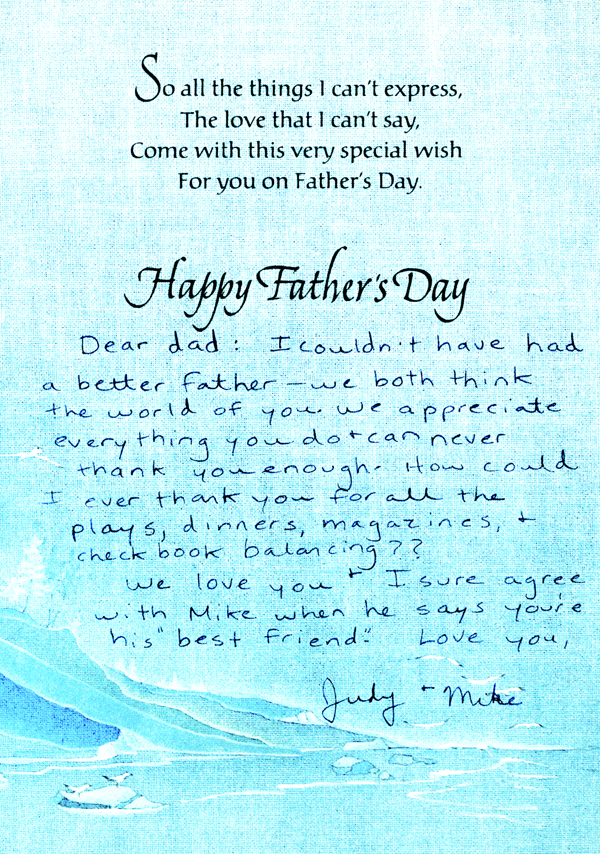 So all the things I can't express,
The love that I can't say,
Come with this very special wish
For you on Father's Day.
Happy Father's Day
Dear dad: I couldn't have had
a better father – we both think
the world of you. We appreciate
everything you do + can never
thank you enough. How could
I ever thank you for all the
plays, dinners, magazines, +
check book balancing??
We love you + I sure agree
with Mike when he says you're
his "best friend." Love you,
Judy + Mike